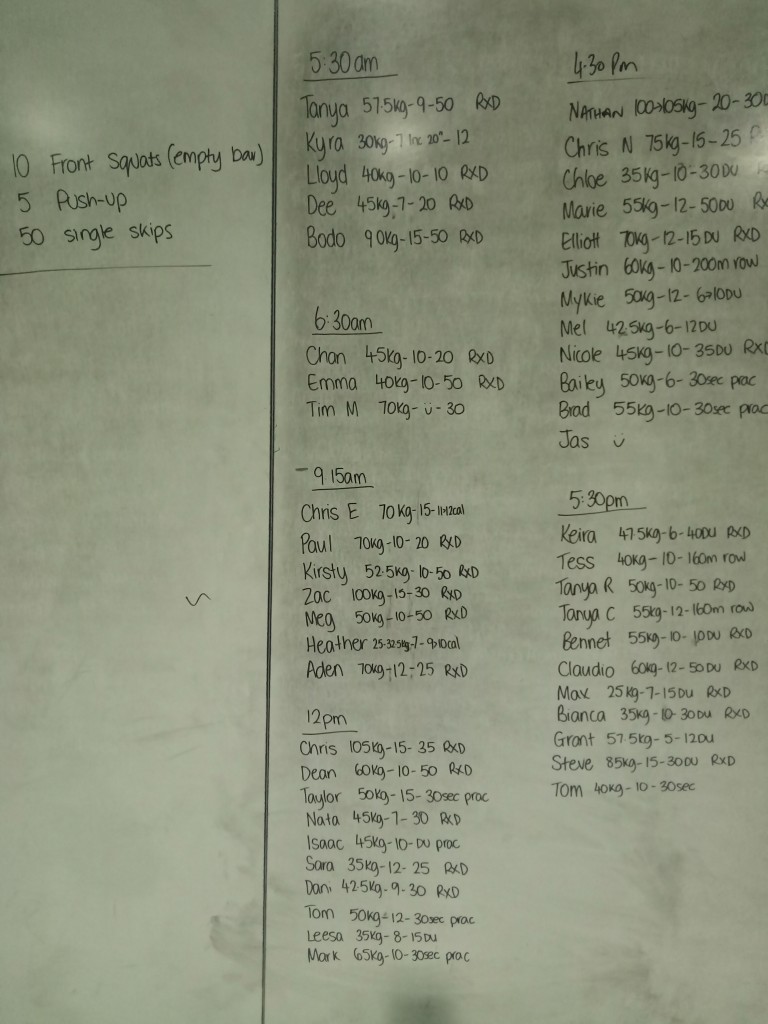 10 Front Squats (empty bar)
5 Push-up
50 single skips
5:30am
Tanya 57.5kg-9-50 RXD
Kyra 30kg-7 Inc 20"-12
Lloyd 40kg-10-10 RXD
Dee 45kg-7-20 RXD
Bodo 90kg-15-50 RXD
6:30am
Chan 45kg-10-20 RXD
Emma 40kg-10-50 RXD
Tim M 70kg-ü-30
9 15am
Chris E 70kg-15-11→12cal
Paul 70kg-10-20 RXD
Kirsty 52.5kg-10-50 RXD
Zac 100kg-15-30 RXD
Meg 50kg-10-50 RXD
Heather 25-32.5kg-7-9→10cal
Aden 70kg-12-25 RXD
12pm
Chris 105kg-15-35 RXD
Dean 60kg-10-50 RXD
Taylor 50kg-15-30sec prac
Nata 45kg-7-30 RXD
Isaac 45kg-10-DU prac
Sara 35kg-12-25 RXD
Dani 42.5kg-9-30 RXD
Tom 50kg-12-30sec prac
Leesa 35kg-8-15DU
Mark 65kg-10-30sec prac
4.30 Pm
NATHAN 100→105kg-20-30D
Chris N 75kg-15-25
Chloe 35kg-10-30DU
Marie 55kg-12-50DU Rx
Elliott 70kg-12-15DU RXD
Justin 60kg-10-200m row
Mykie 50kg-12-6→10DU
Mel 42.5kg-6-12DU
Nicole 45kg-10-35DU RXD
Bailey 50kg-6-30sec prac
Brad 55kg-10-30sec prac
Jas ü
5:30pm
Keira 47.5kg-6-40DU RXD
Tess 40kg-10-160m row
Tanya R 50kg-10-50 RXD
Tanya C 55kg-12-160m row
Bennet 55kg-10-10DU RXD
Claudio 60kg-12-50DU RXD
Max 25kg-7-15DU RXD
Bianca 35kg-10-30DU RXD
Grant 57.5kg-5-12DU
Steve 85kg-15-30DU RXD
Tom 40kg-10-30sec